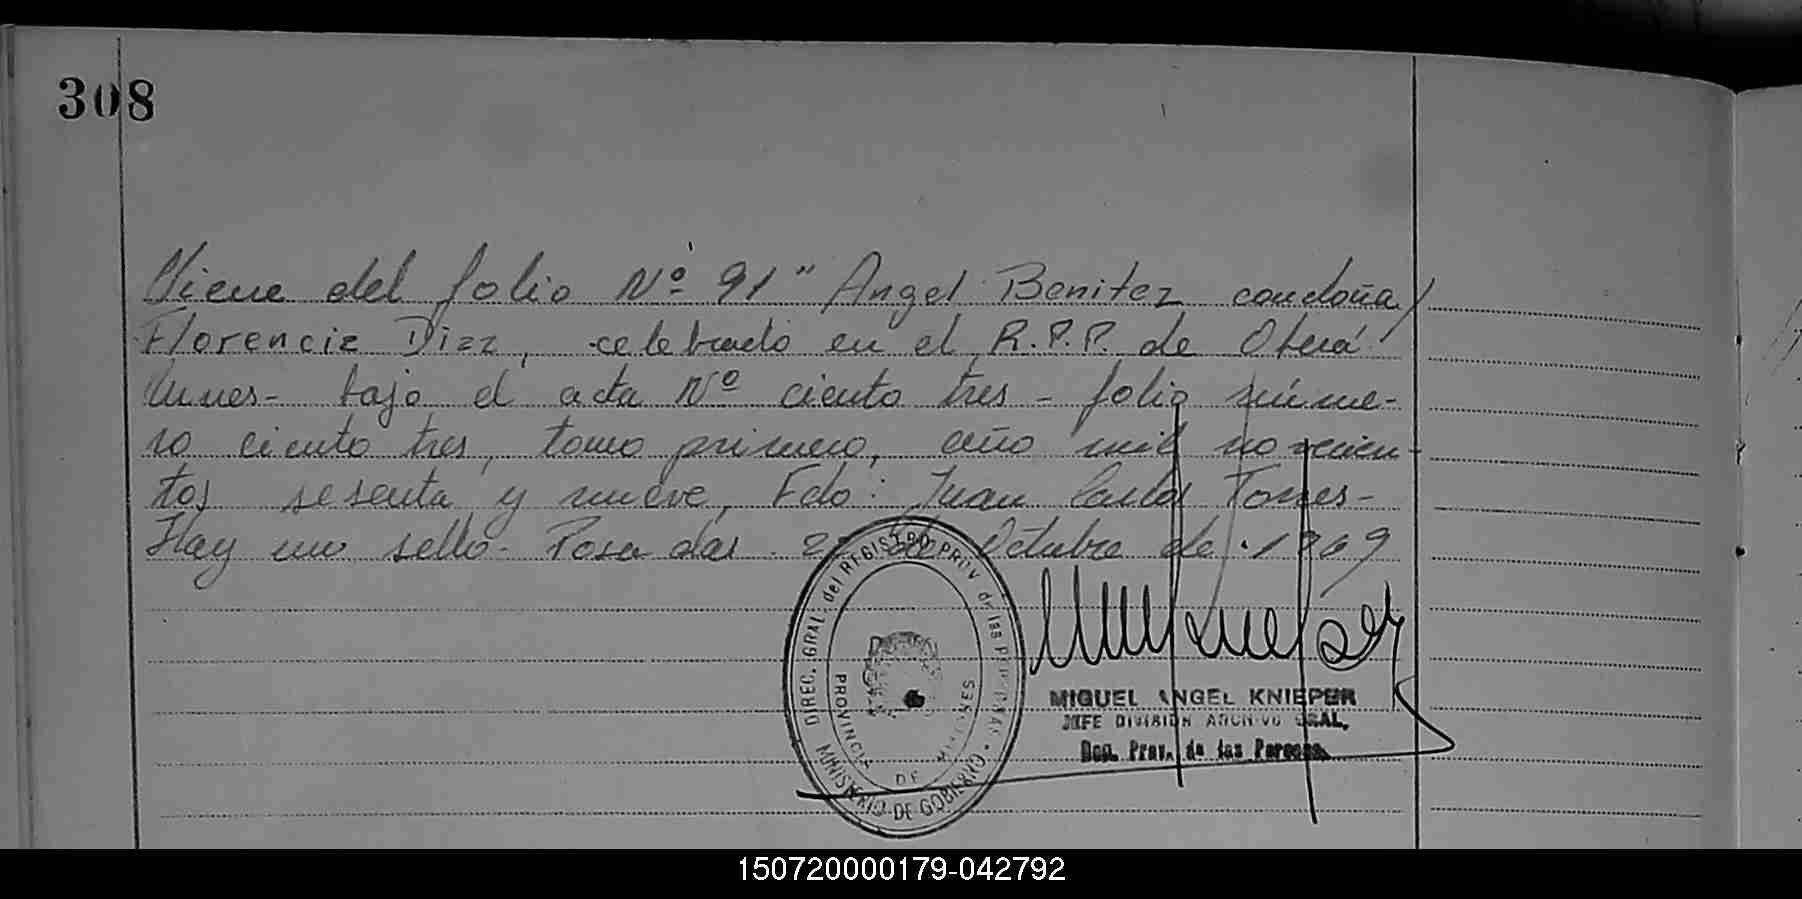 308
Viene del folio Nº 91" Angel Benitez con doña
Florencia Diaz, celebrado en el R.P.P. de Oberá
bajo el acta Nº ciento tres - folio núme-
ro ciento tres, tomo primero, año mil novecien-
tos sesenta y nueve, Fdo: Juan Carlos Torres-
Hay un sello. Posadas. de Octubre de 1969
DIREC. GRAL. del REGISTRO PROV de las PERSONAS
PROVINCIA DE MISIONES
MINISTERIO DE GOBIERNO
MIGUEL ANGEL KNIEPER
JEFE DIVISION ARCHIVO GRAL.
Prov. de las Personas
150720000179-042792